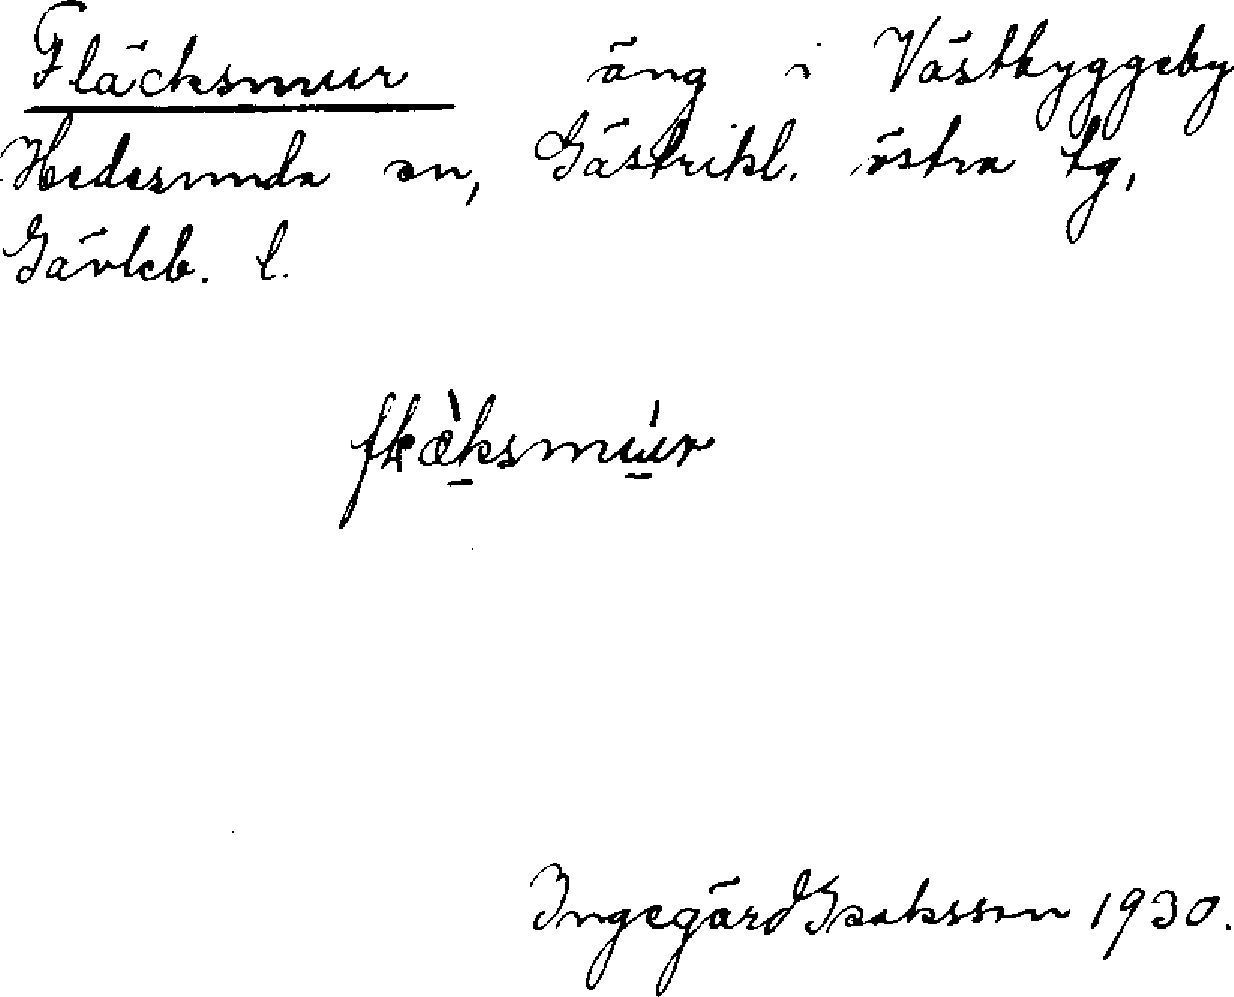 Fläcksmur äng i Västbyggeby
Hedesunda sn, Gästrikl. östra tg,
Gävleb. l.
Ingegärd Isaksson 1930.